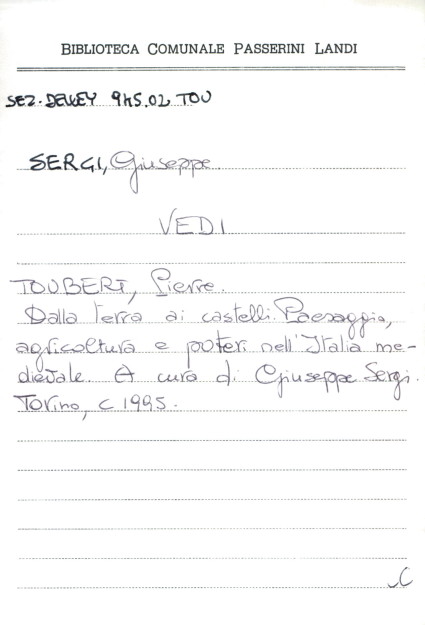 BIBLIOTECA COMUNALE PASSERINI LANDI
SEZ. DEWEY 945.02 TOU
SERGI, Giuseppe
VEDI
TOUBERT, Pierre.
Dalla terra ai castelli. Paesaggio,
agricoltura e poteri nell'Italia me-
dievale. A cura di Giuseppe Sergi.
Torino, c 1995.